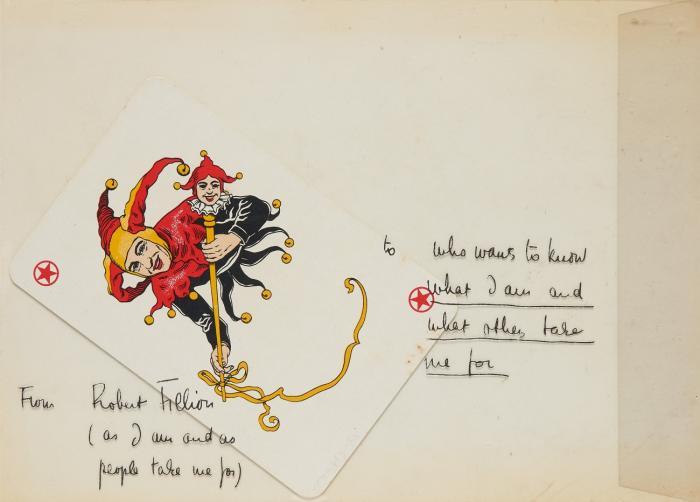 to who wants to know
what I am and
what others take
me for
From Robert Filliou
(as I am and as
people take me for)